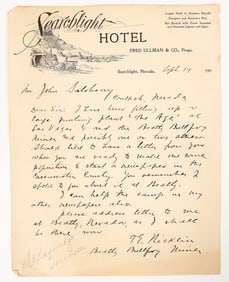 Searchlight
HOTEL
FRED ULLMAN & CO., Props.
Largest Hotel in Southern Nevada
European and American Plan
Bar Stocked with Finest Imported
and Domestic Liquors and Cigars
Searchlight, Nevada, Sept 14 190
Mr John Salsberry
Nevada
Dear Sir: I have been fitting up a
large printing plant "The Age" at
Las Vegas & and the Beatty Bullfrog
Miner & possibly one or two others.
Should like to have a letter from you
when you are ready to make me some
proposition to start a newspaper in the
Greenwater Country. You remember I
spoke to you about it at Beatty.
I can help the camp in my
other newspapers also.
Please address letter to me
at Beatty, Nevada, as I shall
be there soon
Beatty Bullfrog Miner